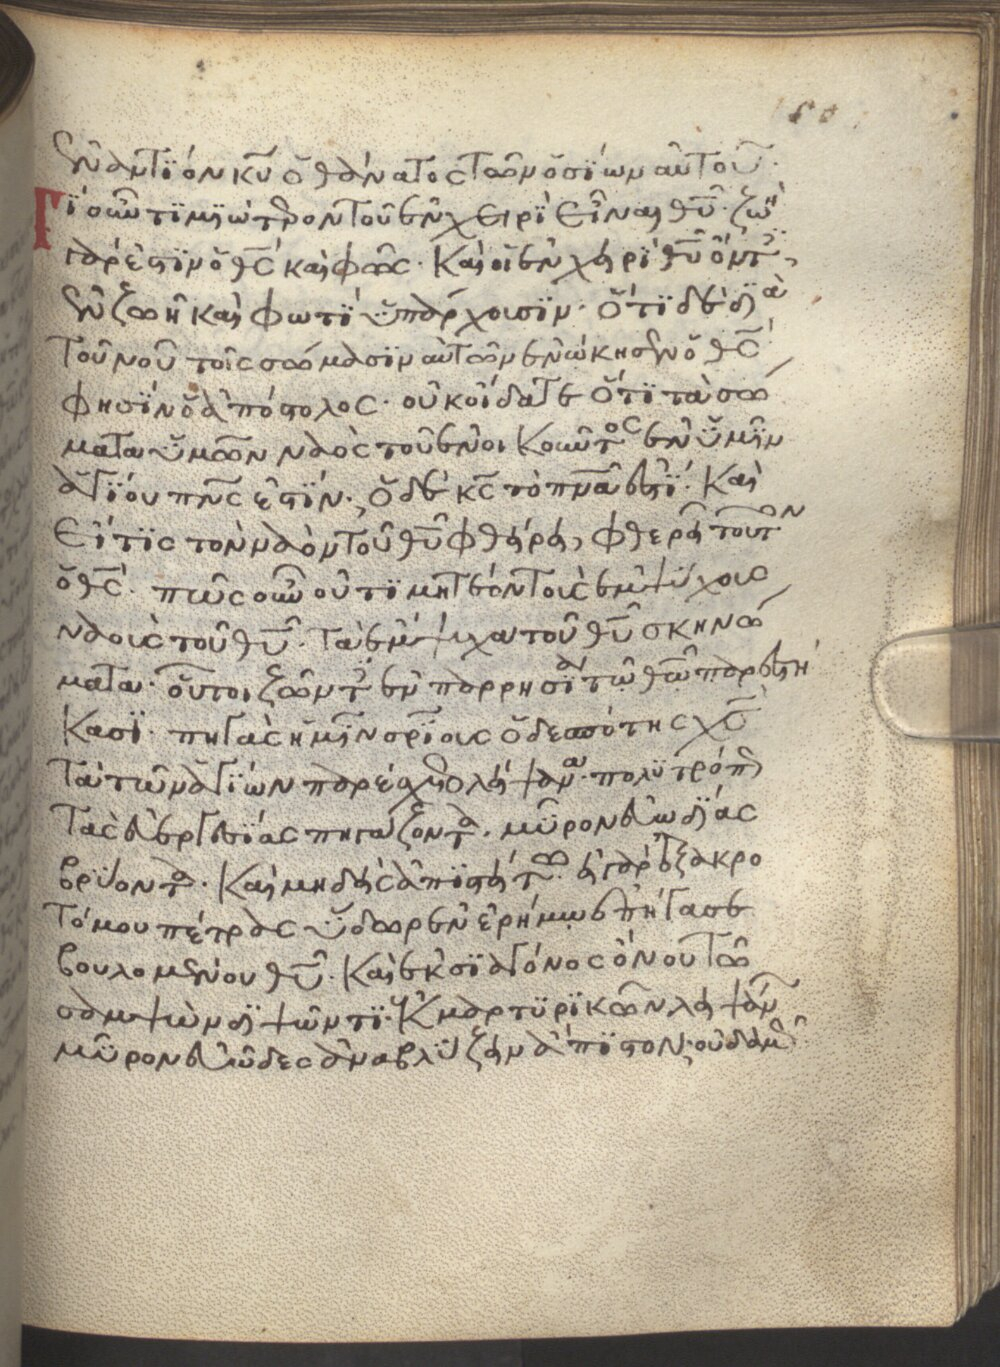 ἐναντίον κυ ὁ θάνατος τῶν ὁσίων αὐτοῦ·
Τί οὖν τιμιώτερον τοῦ ἐν χειρὶ εἶναι θυ· ζωὴ
γάρ ἐστιν ὁ θς καὶ φῶς· Καὶ οἱ ἐν χειρὶ θυ ὄντες,
ἐν ζωῇ καὶ φωτὶ ὑπάρχουσιν· Ὅτι δὲ διὰ
τοῦ νοῦ τοῖς σώμασιν αὐτῶν ἐνώκησεν ὁ θς,
φησὶν ὁ ἀπόστολος· οὐκ οἴδατε ὅτι τὰ σώ
ματα ὑμῶν ναὸς τοῦ ἐνοικοῦντος ἐν ὑμῖν
ἁγίου πνς ἐστίν· ὁ δὲ κς τὸ πνα ἐστί· Καὶ
εἴ τις τὸν ναὸν τοῦ θυ φθείρει, φθερεῖ τοῦτον
ὁ θς· πῶς οὖν οὐ τιμητέον τοὺς ἐμψύχους
ναοὺς τοῦ θυ· τὰ ἔμψυχα τοῦ θυ σκηνώ
ματα· οὗτοι ζῶντες ἐν παρρησίᾳ τῷ θῶ παρεστή
κασι· πηγὰς ἡμῖν σρίους ὁ δεσπότης χς
τὰ τῶν ἁγίων παρέσχετο λείψανα· πολυτρόπως
τὰς εὐεργεσίας πηγάζοντα· μῦρον εὐωδίας
βρύοντα· Καὶ μηδεὶς ἀπιστείτω· εἰ γὰρ ἐξ ἀκρο
τόμου πέτρας ὕδωρ ἐν ἐρήμω ἐπήγασε
βουλομένου θυ· Καὶ ἐκ σιαγόνος ὄνου τῶ
σαμψὼν διψῶντι· Ἐκ μαρτυρικῶν λειψάνων
μῦρον εὐῶδες ἀναβλύζειν ἄπιστον· οὐδαμῶς